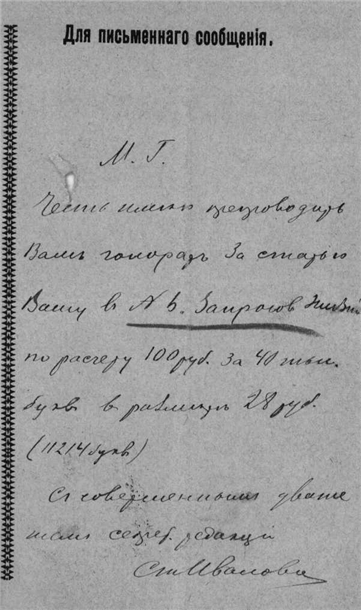 Для письменнаго сообщенія.
М. Г.
Честь имею препроводить
Вамъ гонораръ за статью
Вашу в № 6. Запросов Жизни
по расчету 100 руб. за 40 тыс.
букв в размѣрѣ 28 руб.
(11214 букв)
С совершенным уваже
нием секрет. редакціи
Ст. Иванович